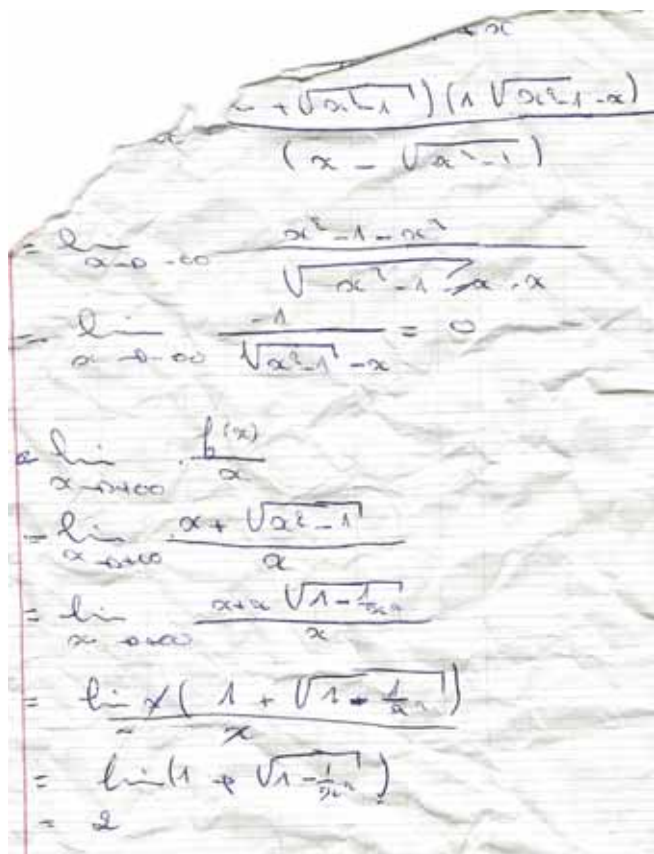 + x
+ √(x²-1) ) (1 √(x²-1 - x)
( x - √(x²-1) )
= lim x→-∞ (x² - 1 - x²) / (√(x² - 1 - x - x)
= lim x→-∞ -1 / (√(x²-1) - x) = 0
lim x→+∞ f(x) / x
= lim x→+∞ (x + √(x² - 1)) / x
= lim x→+∞ (x + x √(1 - 1/x²)) / x
= lim x( 1 + √(1 - 1/x²) ) / x
= lim (1 + √(1 - 1/x²) )
= 2